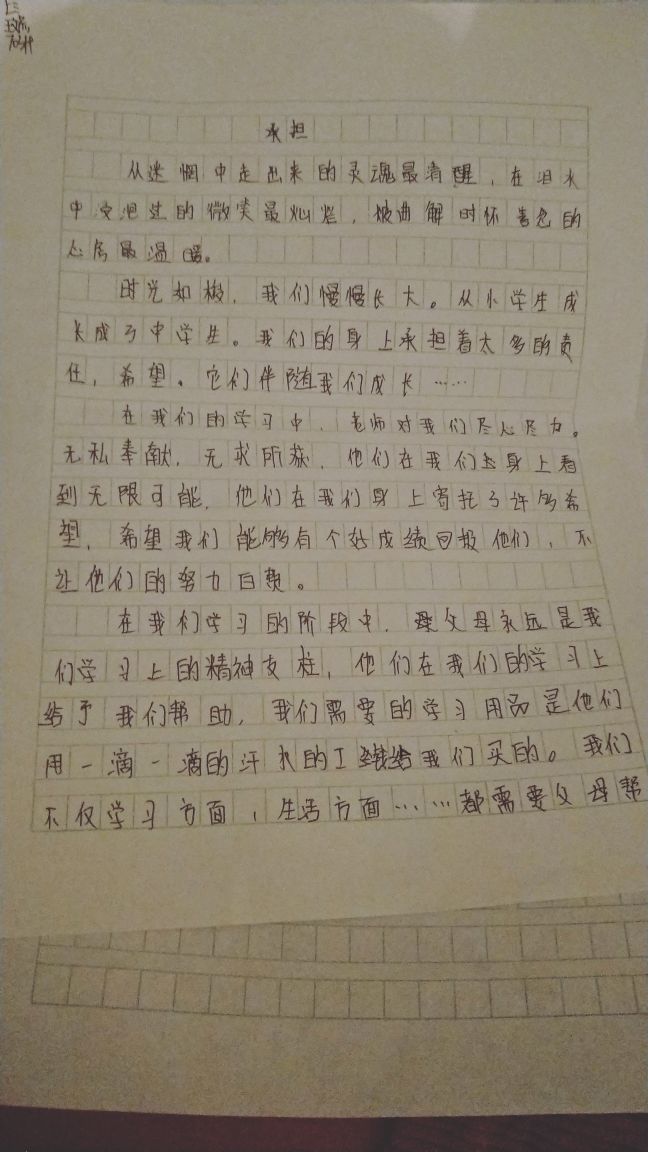 承担
从迷惘中走出来的灵魂最清醒,在泪水
中浸泡过的微笑最灿烂,被曲解时怀善意的
心房最温暖。
时光如梭,我们慢慢长大。从小学生成
长成了中学生。我们的身上承担着太多的责
任,希望。它们伴随我们成长……
在我们的学习中,老师对我们尽心尽力。
无私奉献,无求所获,他们在我们身上看
到无限可能,他们在我们身上寄托了许多希
望,希望我们能够有个好成绩回报他们,不
让他们的努力白费。
在我们学习的阶段中,父母永远是我
们学习上的精神支柱,他们在我们的学习上
给予我们帮助,我们需要的学习用品是他们
用一滴一滴的汗水的工钱给我们买的。我们
不仅学习方面,生活方面……都需要父母帮